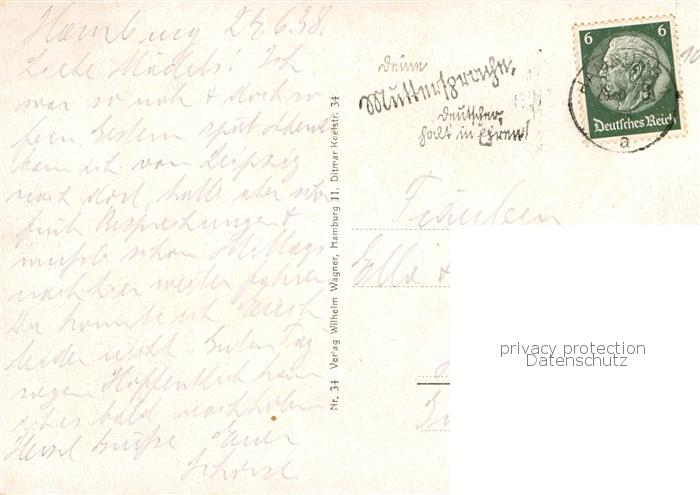 Hamburg 24.6.38.
Liebe Mädels. Ich
war so nah & doch so
fern. Gestern spät abends
kam ich von Leipzig
nach dort, hatte aber
früh Besprechungen &
mußte schon Mittags
nach hier weiter fahren
Da konnte ich Euch
leider nicht Guten Tag
sagen. Hoffentlich kann
ich es bald nachholen
Herzl Grüße Euer
Nr. 34 Verlag Wilhelm Wagner, Hamburg 11, Ditmar Koelstr. 34
Deine
Muttersprache,
Deutscher,
halt in Ehren!
6 6
Deutsches Reich
a
Fräulein
Ella &
privacy protection
Datenschutz